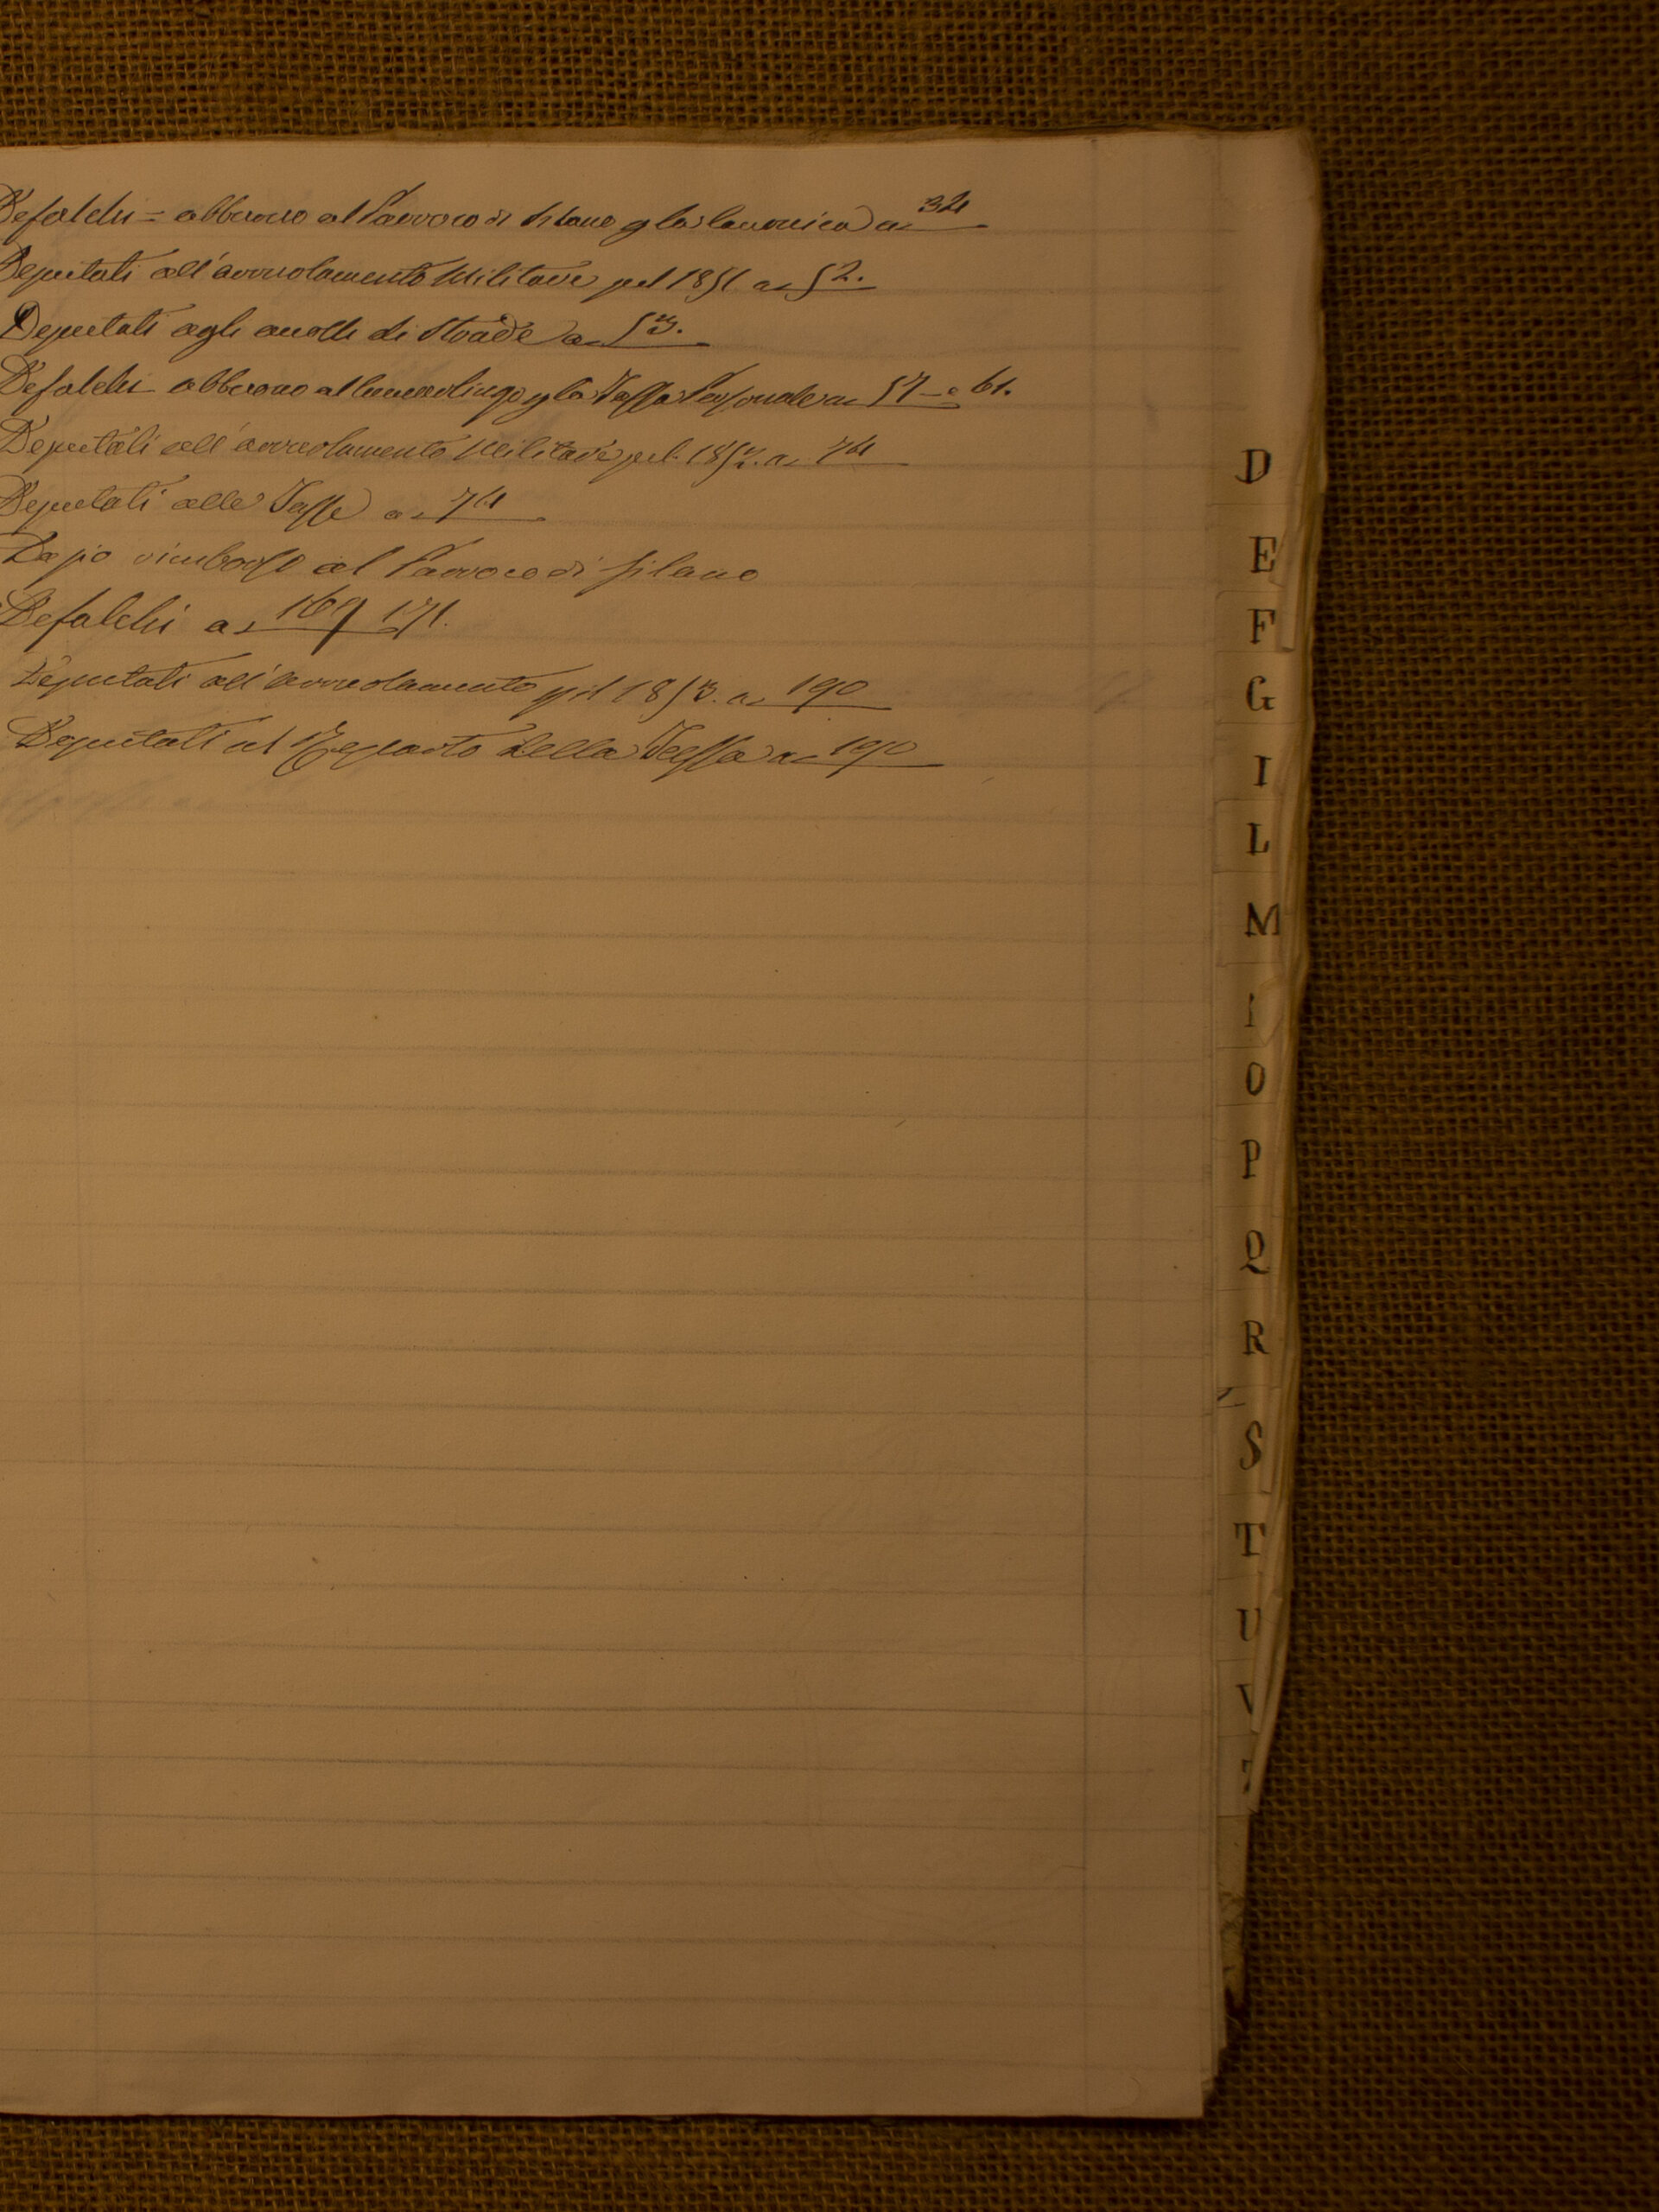 Defalchi = abbuono al Parroco di Silano p la Canonica a 34
Deputati all'arruolamento Militare pel 1851. a 52.
Deputati agli accolli di Strade a 53.
Defalchi abbuono al p la Tassa Personale a 57 - e 61.
Deputati all'arruolamento Militare pel 1852. a 74
Deputati alle Tasse a 74
Dazio rimborso al Parroco di Silano
Defalchi a 169 171.
Deputati all'arruolamento pel 1853. a 190
Deputati al Reparto della Tassa a 190
D
E
F
G
I
L
M
O
P
Q
R
S
T
U
V